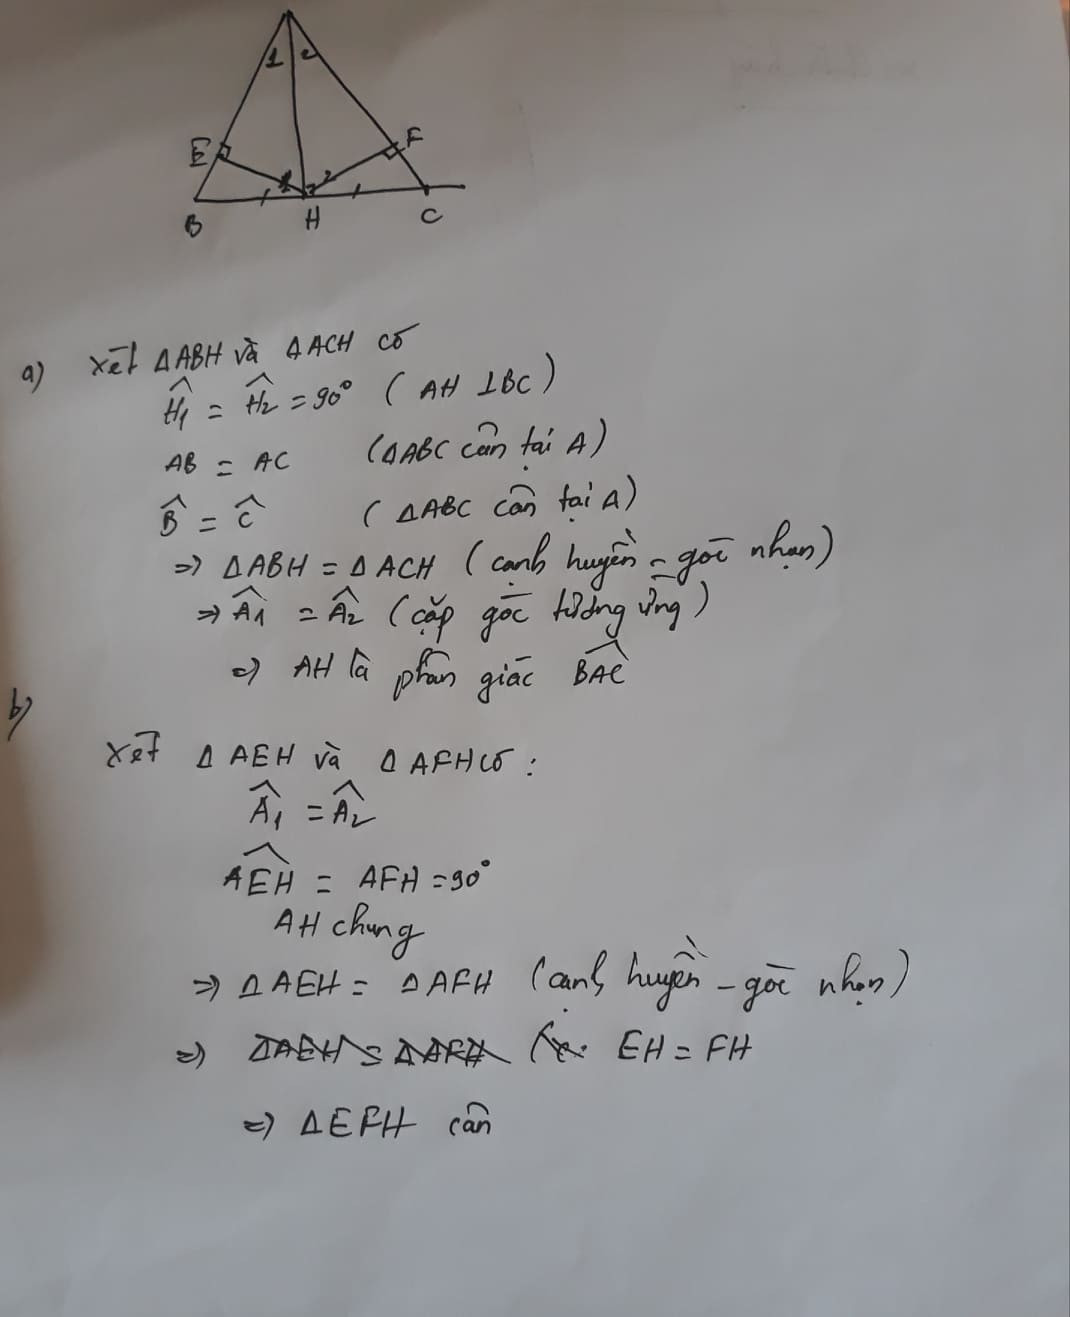 1 2
E F
1 2
B H C
a) xét ΔABH và ΔACH có
Ĥ₁ = Ĥ₂ = 90° ( AH ⊥BC )
AB = AC (ΔABC cân tại A)
B̂ = Ĉ ( ΔABC cân tại A)
=> ΔABH = ΔACH ( cạnh huyền - góc nhọn)
=> Â₁ = Â₂ ( cặp góc tương ứng )
=> AH là phân giác B̂AC
b)
Xét Δ AEH và Δ AFH có :
Â₁ = Â₂
AÊH = AFH = 90°
AH chung
=> ΔAEH = ΔAFH (cạnh huyền - góc nhọn)
=> ΔAEH = ΔAFH EH = FH
=> ΔEFH cân